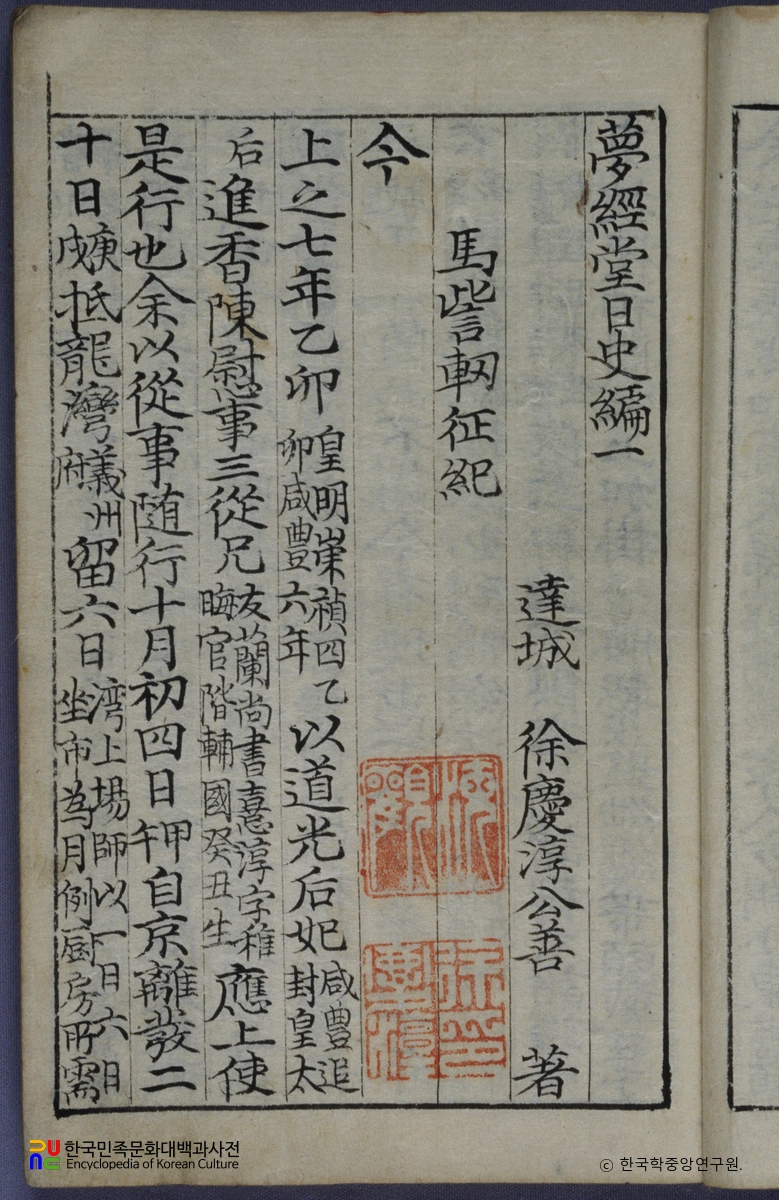 夢經堂日史編一
達城 徐慶淳公善 著
馬訾軔征紀
今
上之七年乙卯皇明崇禎四乙卯咸豊六年以道光后妃咸豊追封皇太
后進香陳慰事三從兄友蘭尚書憙淳字稚晦官階輔國癸丑生應上使
是行也余以從事随行十月初四日甲午自京離發二
十日庚戌抵龍灣義州府留六日湾上場師以一日六日坐市為月例厨房所需
한국민족문화대백과사전
Encyclopedia of Korean Culture
© 한국학중앙연구원.